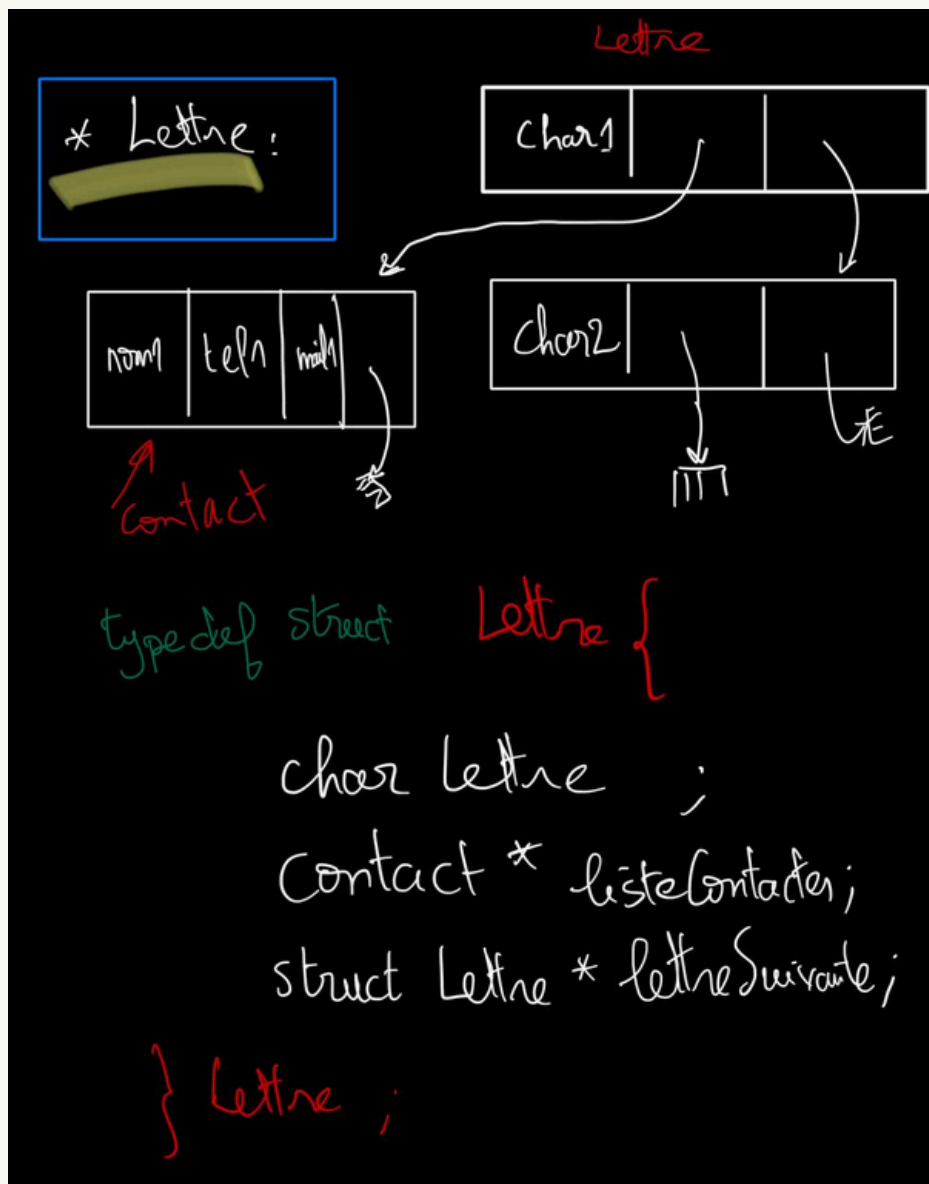 Lettre
* Lettre :
Char1
nom1 tel1 mail1
Char2
Contact
typedef struct Lettre {
char lettre ;
Contact * listeContacter;
struct Lettre * lettreSuivante;
} Lettre ;